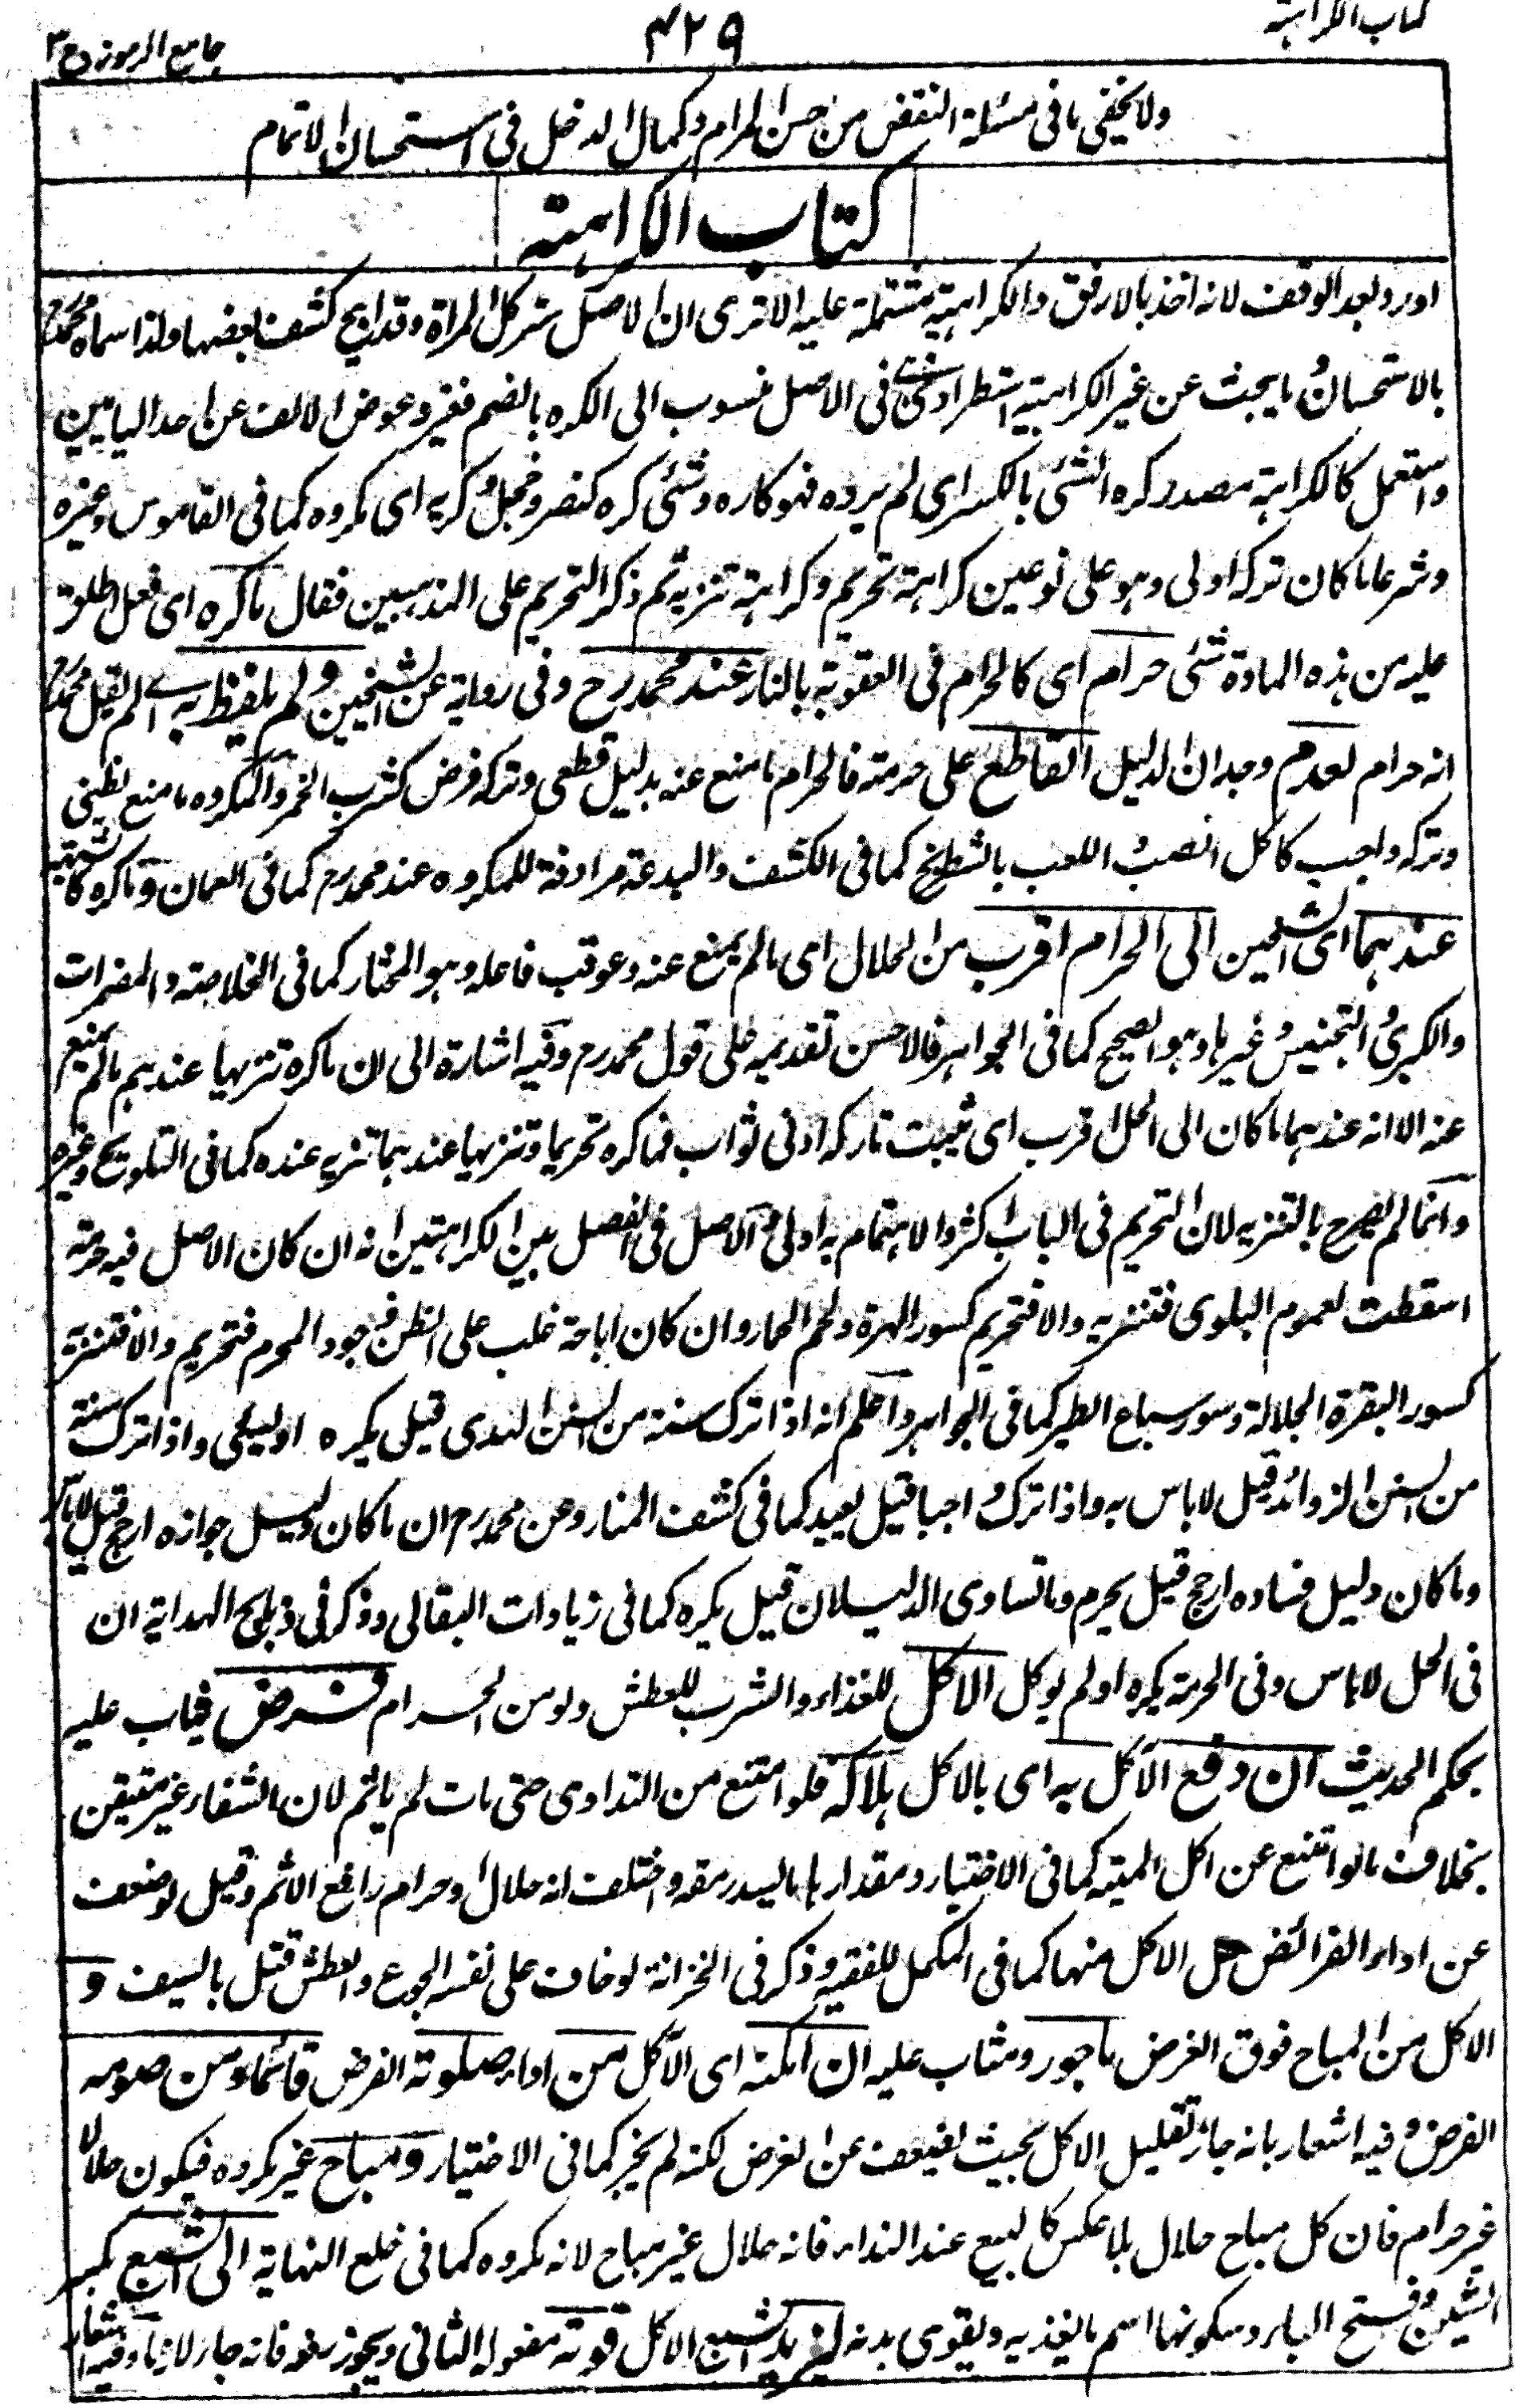 كتاب الكراهية
٤٢٩
جامع الرموز ج ٣
ولا يخفى ما فى مسئلة النقض من حسن المرام وكمال الدخل فى استحسان الاتمام
كتاب الكراهية
اورد بعد الوقف لانه اخذ بالارفق والكراهية مشتملة عليه الا ترى ان الاصل ستر كل المراة وقد ابيح كشف بعضها ولذا سماه محمد رح
بالاستحسان وما يبحث عن غير الكراهية استطرادى وهى فى الاصل منسوب الى الكره بالضم فغير وعوض الالف عن احد اليايين
واستعمل كالكراهة مصدر كره الشئ بالكسر اى لم يرده فهو كاره وشئ كره كنصر وخجل وكريه اى مكروه كما فى القاموس وغيره
وشرعا ما كان تركه اولى وهو على نوعين كراهة تحريم وكراهة تنزيه ثم ذكر التحريم على المذهبين فقال ما كره اى فعل اطلق
عليه من هذه المادة شئ حرام اى كالحرام فى العقوبة بالنار عند محمد رح وفى رواية عن الشيخين ولم يلفظ به اى لم يقل محمد رح
انه حرام لعدم وجدان الدليل القاطع على حرمته فالحرام ما منع عنه بدليل قطعى وتركه فرض كشرب الخمر والمكروه ما منع بظنى
وتركه واجب كاكل الضب واللعب بالشطرنج كما فى الكشف والبدعة مرادفة للمكروه عند محمد رح كما فى العمان وما كره كراهية
عندهما اى الشيخين الى الحرام اقرب من الحلال اى ما لم يمنع عنه وعوقب فاعله وهو المختار كما فى الخلاصة والمضمرات
والكبرى والتجنيس وغيرها وهو الصحيح كما فى الجواهر فالاحسن تقديمه على قول محمد رح وفيه اشارة الى ان ما كره تنزيها عندهم ما لم يمنع
عنه الا انه عندهما ما كان الى الحل اقرب اى يثبت تاركه ادنى ثواب فما كره تحريما وتنزيها عندهما تنزيه عنده كما فى التلويح وغيره
وانما لم يصرح بالتنزيه لان التحريم فى الباب اكثر والاهتمام به اولى والاصل فى الفصل بين الكراهتين انه ان كان الاصل فيه حرمة
اسقطت لعموم البلوى فتنزيه والا فتحريم كسور الهرة ولحم الحمار وان كان اباحة غلب على الظن وجود المحرم فتحريم والا فتنزيه
كسور البقرة الجلالة وسور سباع الطير كما فى الجواهر واعلم انه اذا ترك سنة من السنن الهدى قيل يكره او ليسئ واذا ترك سنة
من السنن الزوائد قيل لا باس به واذا ترك واجبا قيل يعيد كما فى كشف المنار وعن محمد رح ان ما كان دليل جوازه ارجح قيل لا باس
وما كان دليل فساده ارجح قيل يحرم وما تساوى الدليلان قيل يكره كما فى زيادات البقالى وذكر فى ذبايح الهداية ان
فى الحل لا باس وفى الحرمة يكره او لم يوكل الاكل للغذاء والشرب للعطش ولو من الحرام فرض فيثاب عليه
بحكم الحديث ان دفع الآكل به اى بالاكل هلاكه فلو امتنع من التداوى حتى مات لم ياثم لان الشفاء غير متيقن
بخلاف ما لو امتنع عن اكل الميتة كما فى الاختيار ومقدارها ما يسد رمقه واختلف انه حلال او حرام رافع الاثم وقيل لو ضعف
عن اداء الفرائض حل الاكل منها كما فى المكمل للفقيه وذكر فى الخزانة لو خاف على نفسه الجوع والعطش قتل بالسيف و
الاكل من المباح فوق الفرض ماجور ومثاب عليه ان امكنه اى الآكل من اداء صلوته الفرض قائما ومن صومه
الفرض وفيه اشعار بانه جاز تقليل الاكل بحيث يضعف عن الفرض لكنه لم يجز كما فى الاختيار ومباح غير مكروه فيكون حلالا
غير حرام فان كل مباح حلال بلا عكس كالبيع عند النداء فانه حلال غير مباح لانه مكروه كما فى خلع النهاية الى الشبع بكسر
الشين وفتح الباء وسكونها اسم ما يغذيه ويقوى بدنه ليزيد الشبع الاكل قوته مفعوله الثانى ويجوز رفعه فانه جاء لازما وفيه اشعار